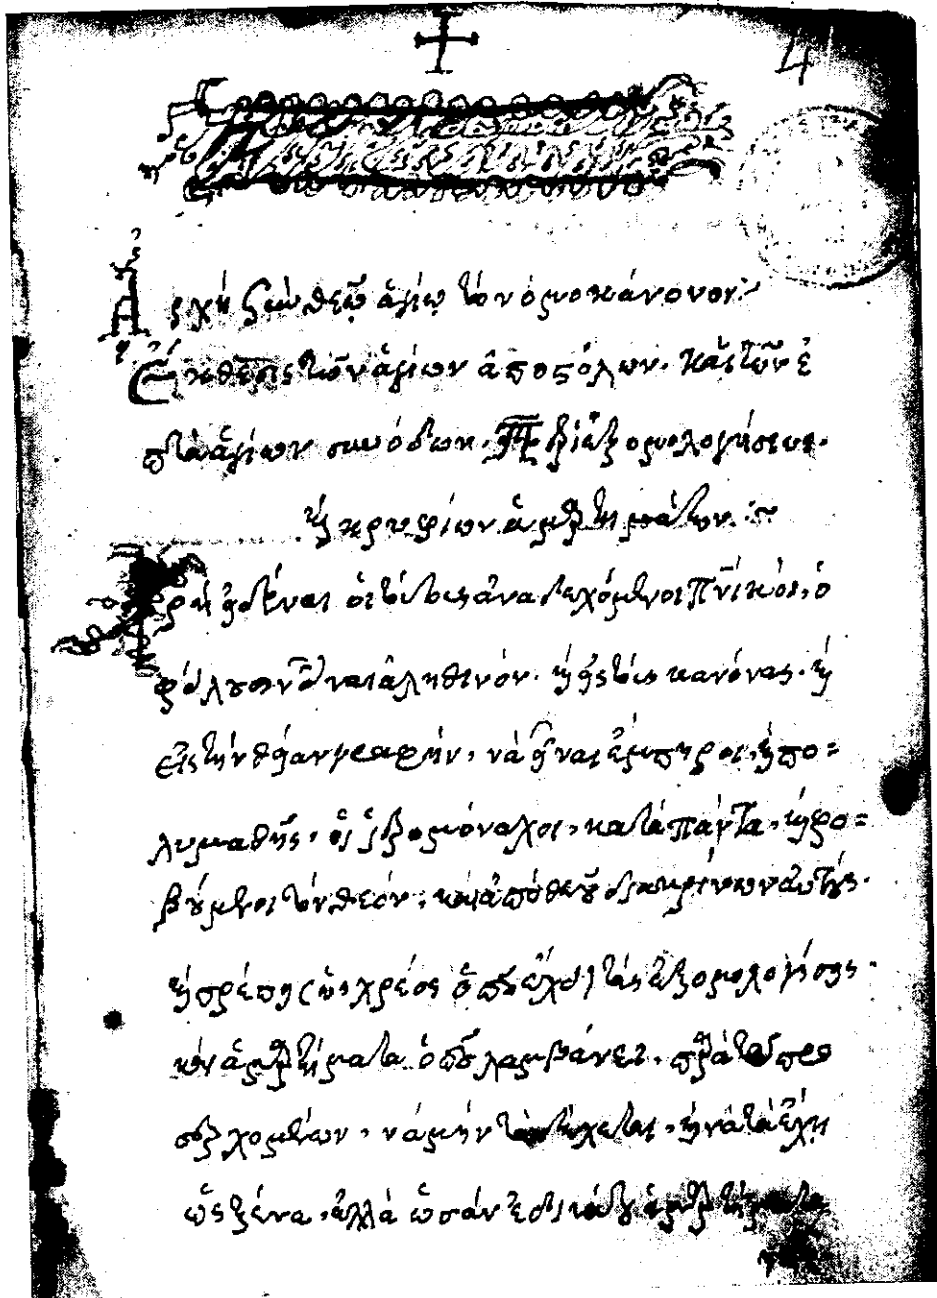 4
Ἀρχὴ σὺν θεῷ ἁγίῳ τὸν νομοκάνονον
Ἔκθεσις τῶν ἁγίων ἀποστόλων. καὶ τῶν ἑ
πτὰ ἁγίων συνόδων. Περὶ ἐξομολογήσεων.
κρυφίων ἁμαρτημάτων
Χρὴ εἰδέναι ὁι τούτους ἀναδεχόμενοι πνϊκοὶ, ὁ
ἀληθινὸν. καὶ εἰς τοὺς κανόνας. καὶ
εἰς τὴν θείαν γραφὴν, νὰ εἶναι ἔμπηροι, καὶ πο=
λυμαθῆς, οἱ ἱερομόναχοι, κατὰ πάντα, καὶ φο=
βούμενοι τὸν θεόν, καὶ ἀπὸ θεοῦ διακρίνων αὐτούς.
καὶ πρέπει χρέος ὁποῦ ἔχουν τὰς ἐξομολογήσης.
ἁμαρτήματα ὁποῦ λαμβάνει. παρὰ τῶν προ
σερχομένων, νὰ μὴν τὰ δέχεται, καὶ νὰ τὰ ἔχη
ὡς ξένα, ἀλλὰ ὡσὰν ἐδικά του ἁμαρτήματα